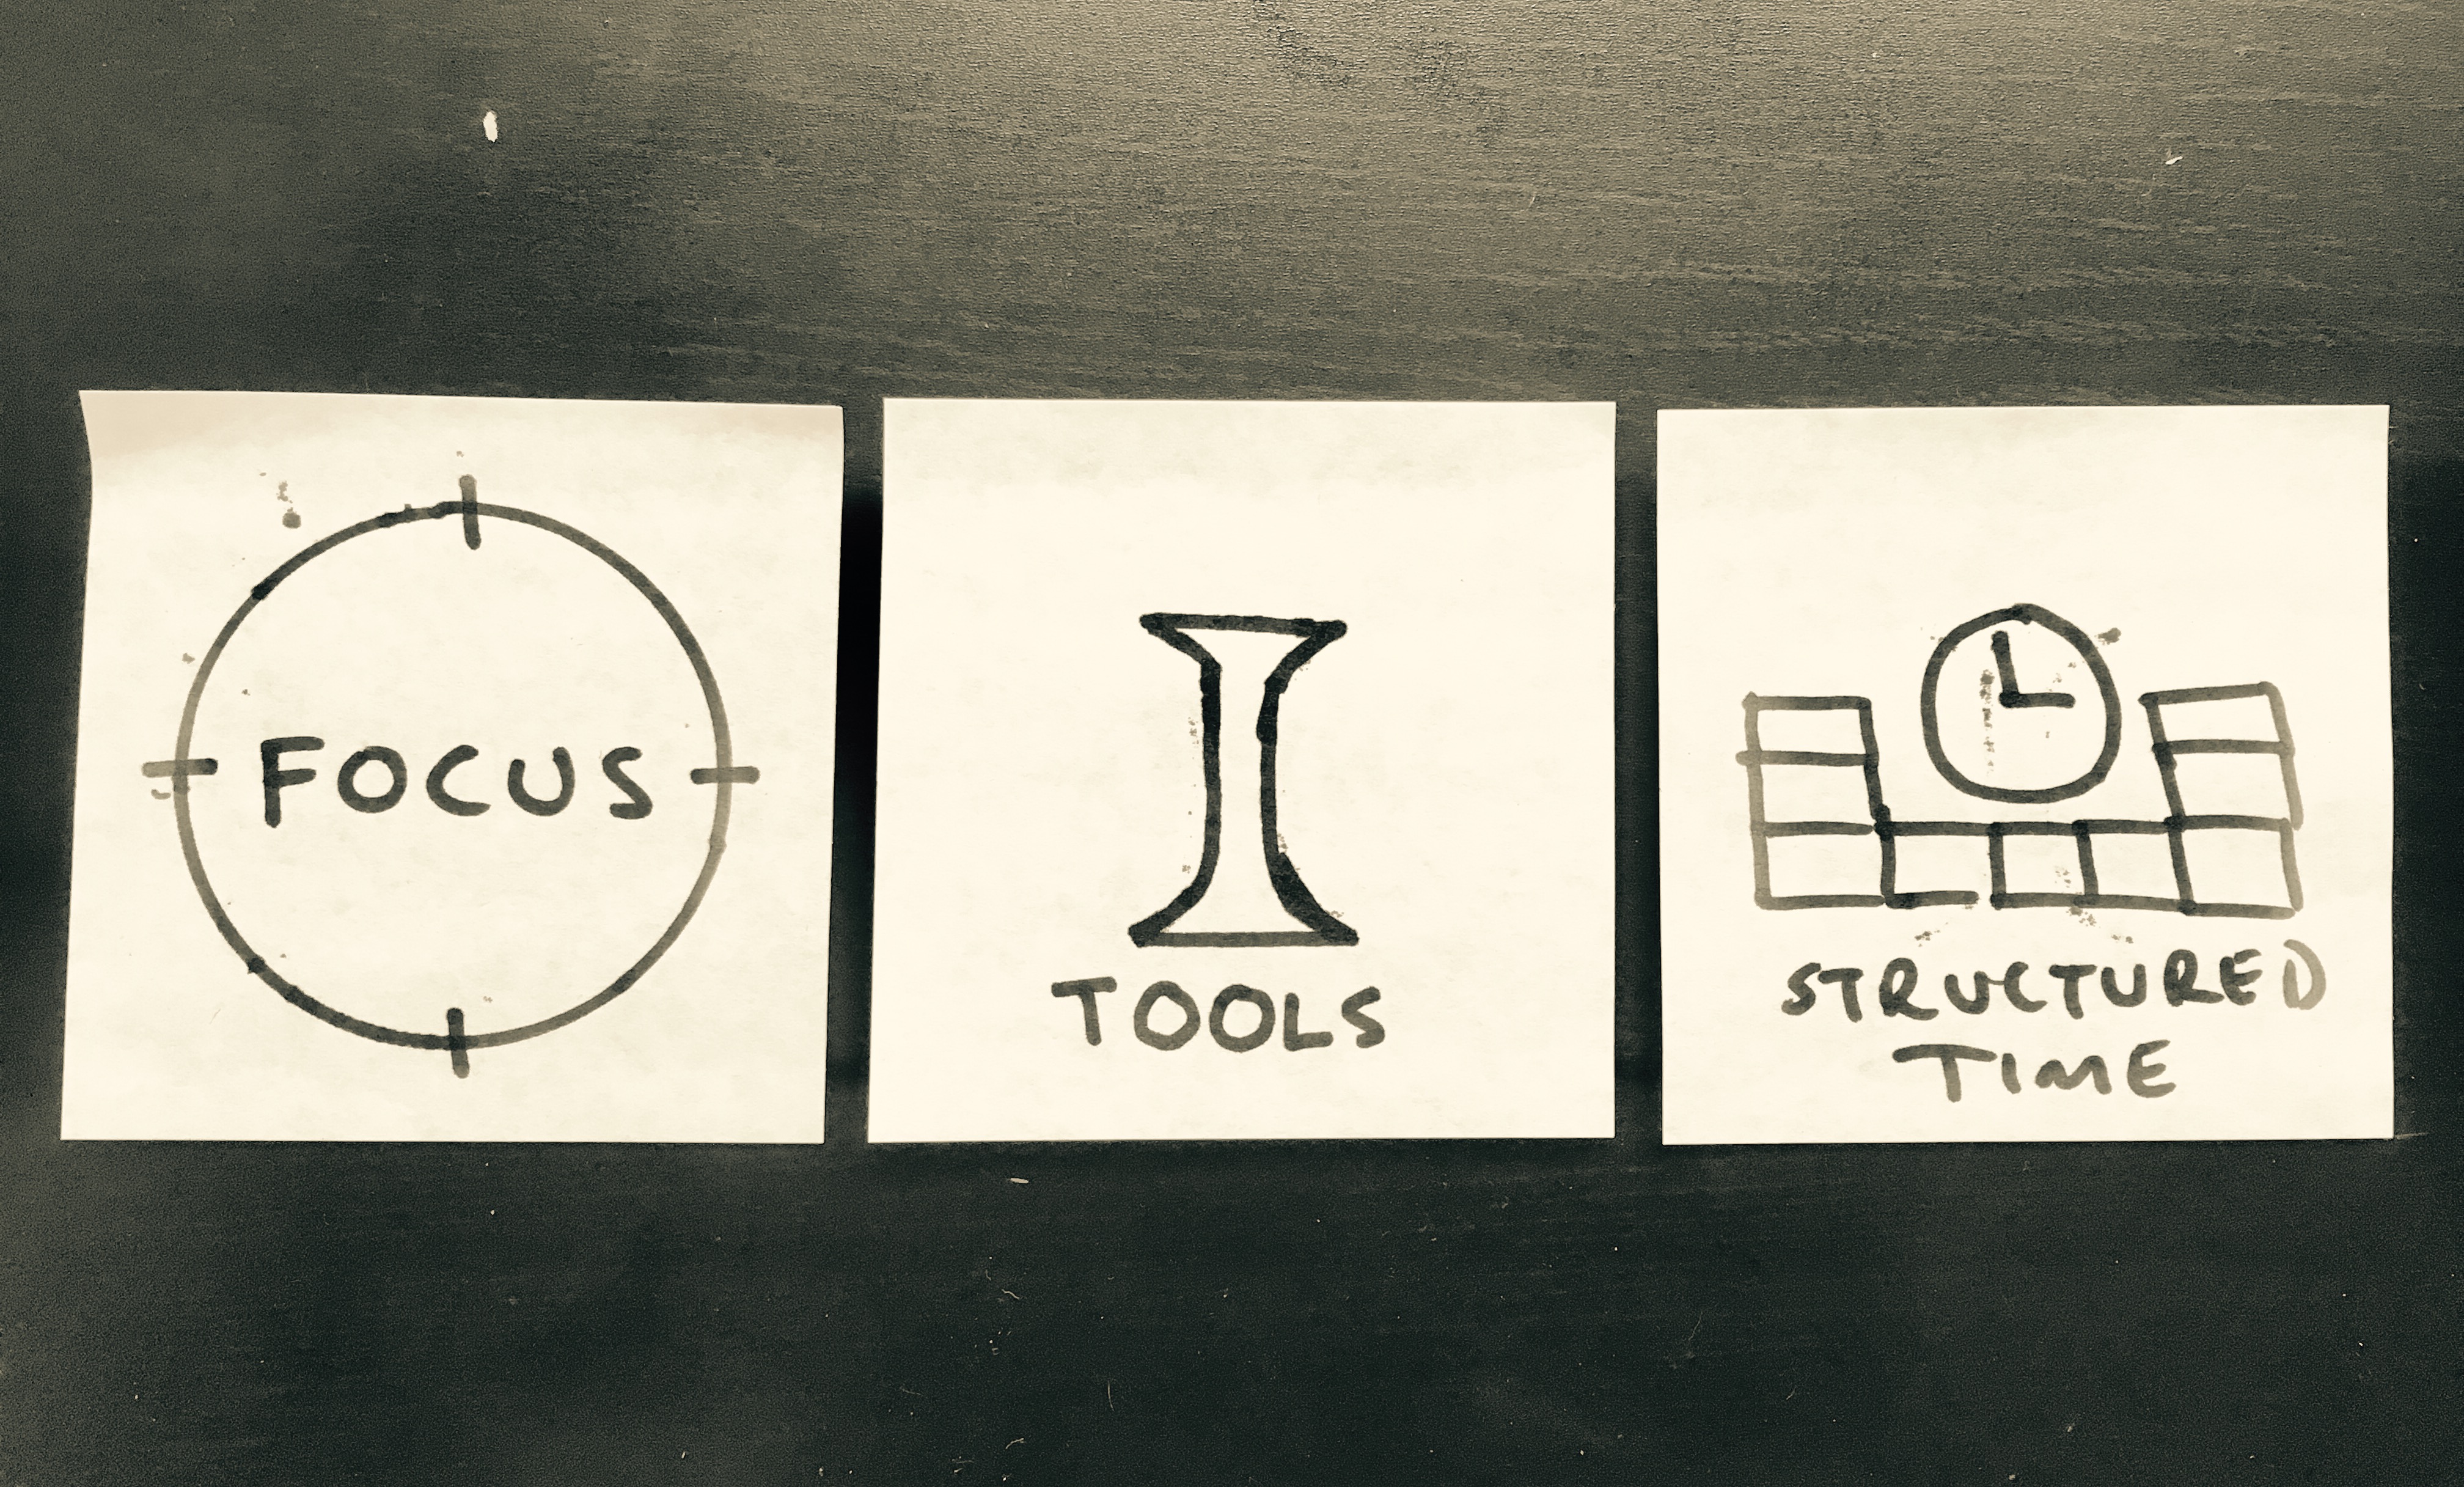 FOCUS
TOOLS
STRUCTURED
TIME